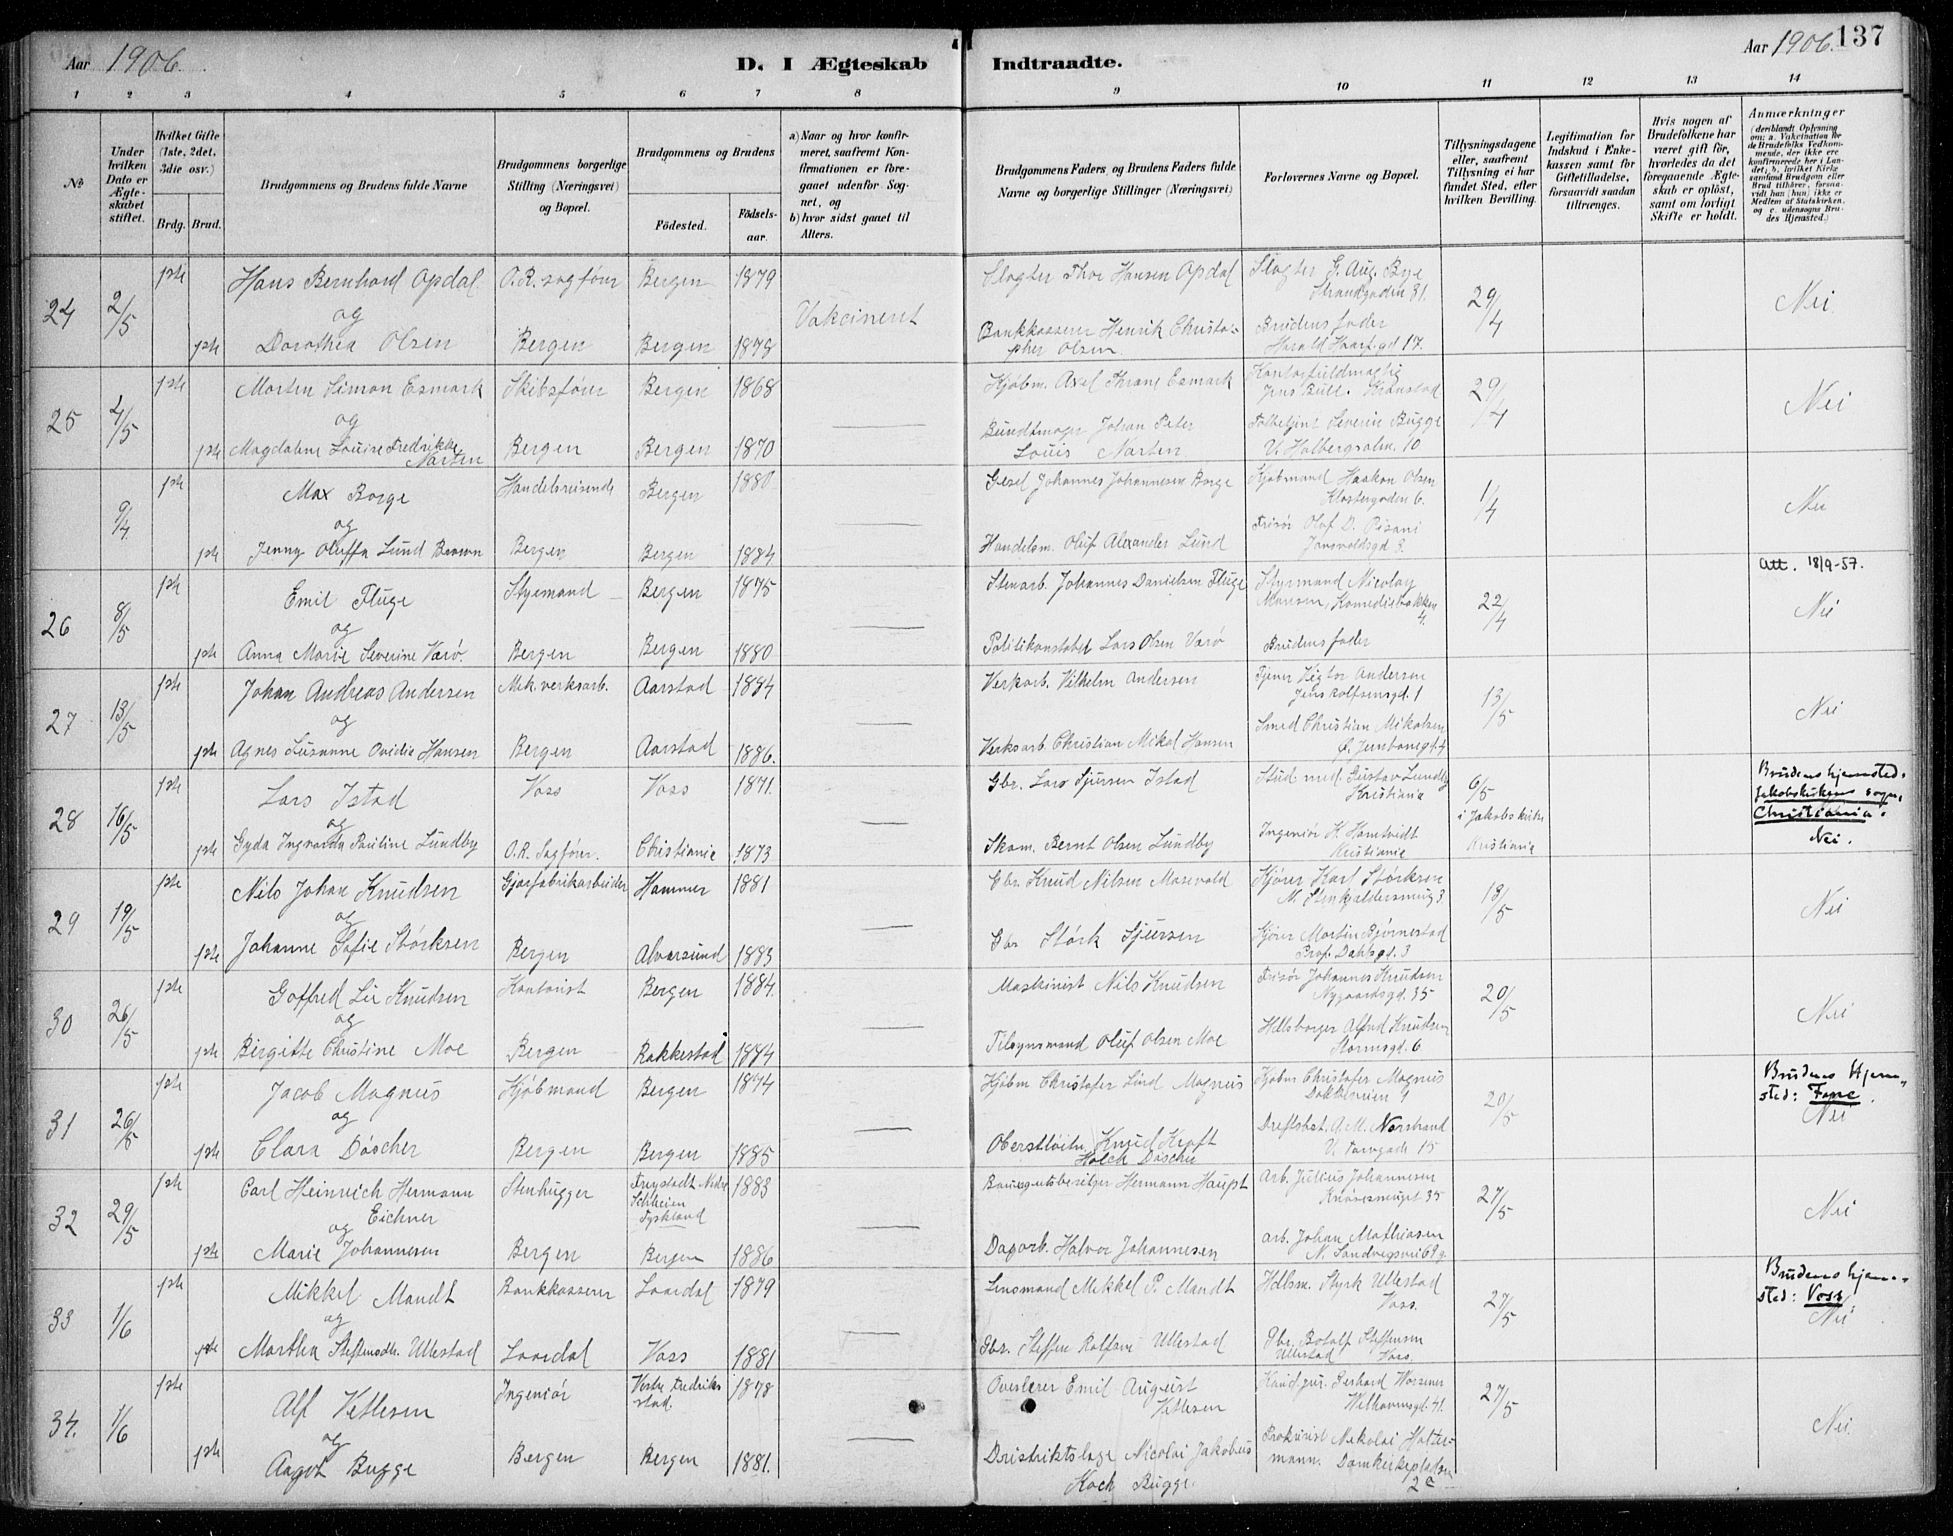 Aar 1906.
D. I Ægteskab Indtraadte.
Aar 1906. 137
1 2 3 4 5 6 7 8 9 10 11 12 13 14
No
Under hvilken Dato er Ægteskabet stiftet.
Hvilket Gifte (1ste, 2det, 3die osv.)
Brdg. Brud.
Brudgommens og Brudens fulde Navne
Brudgommens borgerlige Stilling (Næringsvei) og Bopæl.
Brudgommens og Brudens
Födested.
Födselsaar.
a) Naar og hvor konfirmeret, saafremt Konfirmationen er foregaaet udenfor Sognet, og
b) hvor sidst gaaet til Alters.
Brudgommens Faders, og Brudens Faders fulde Navne og borgerlige Stillinger (Næringsvei)
Forlovernes Navne og Bopæl.
Tillysningsdagene eller, saafremt Tillysning ei har fundet Sted, efter hvilken Bevilling.
Legitimation for Indskud i Enkekassen samt for Giftetilladelse, forsaavidt saadan tiltrænges.
Hvis nogen af Brudefolkene har været gift för, hvorledes da det foregaaende Ægteskab er oplöst, samt om lovligt Skifte er holdt.
Anmærkninger (deriblandt Oplysning om: a. Vakcination for de Brudefolks Vedkommende, der ikke ere konfirmerede her i Landet; b. hvilket Kirkesamfund Brudgom eller Brud tilhörer, forsaavidt han (hun) ikke er Medlem af Statskirken, og c. udensogns Brudes Hjemsted.)
24 2/5 1ste Hans Bernhard Opdal O.R. sagfører Bergen 1879 Slagter Thor Hansen Opdal Slagter G. Aug. Bye
Strandgaden 81. 29/4 Nei.
og Vakcineret
1ste Dorothea Olsen Bergen Bergen 1878 Bankkasserer Henrik Christopher Olsen. Brudens fader
Harald Haarf.gd 17.
25 4/5 1ste Morten Simon Esmark Skibsfører Bergen 1868 Kjøbm. Axel Thrane Esmark Kontorfuldmægtig
Jens Bull. Kronstad 29/4 Nei
og
1ste Magdalene Louise Fredrikke Narten Bergen Bergen 1870 Bundtmager Johan Peter
Louis Narten Severin Bugge
V. Holbergsalm. 10
9/4 1ste Max Borge Handelsreisende Bergen 1880 Johannes Johannesen Borge Kjøbmand Haakon Olsen
Klostergaden 6. 1/4 Nei
og
1ste Jenny Oluffa Lund Brown Bergen Bergen 1884 Handelsm. Oluf Alexander Lund Frisør Olaf D. Pisani
Att. 18/9-57.
26 8/5 1ste Emil Fluge Styrmand Bergen 1875 Stenarb. Johannes Danielsen Fluge Styrmand Nicolay
Monsen, Komediebakken 4. 22/4 Nei
og
1ste Anna Marie Severine Varø. Bergen Bergen 1880 Politikonstabel Lars Olsen Varø Brudens fader
27 13/5 1ste Johan Andreas Andersen Mek. verksarb. Aarstad 1884 Verkarb. Vilhelm Andersen Tjener Viktor Andersen
Jens Rolfsensgd. 1 13/5 Nei
og
1ste Agnes Susanne Ovidie Hansen Bergen Aarstad 1886. Verksarb. Christian Mikal Hansen Smed Christian Mikalsen
Ø. Jernbanegd. 4
28 16/5 1ste Lars Istad Voss Voss 1871. Gbr. Lars Sjursen Istad Stud med Gustav Lundby
Kristiania 6/5
i Jakobskirke
Kristiania
Brudens hjemsted:
Jakobskirkens sogn,
Christiania.
Nei.
og
1ste Gyda Ingvarda Pauline Lundby O.R. Sagfører. Christiania 1873 Skom. Bernt Olsen Lundby Ingeniør H. Homtvidt
Kristiania
29 19/5 1ste Nils Johan Knudsen Hammer 1881 Gbr. Knud Nilsen Kjører Karl Størksen 18/5 Nei
og
1ste Johanne Sofie Størksen Bergen Alversund 1883 Gbr Størk Sjursen Kjører Martin Bjørnestad
Prof. Dahlsgd. 3
30 26/5 1ste Gotfred Lie Knudsen Kontorist Bergen 1884. Maskinist Nils Knudsen Frisør Johannes Knudsen
Nygaardsgd. 35 20/5 Nei
og
1ste Birgitte Christine Moe Bergen Rakkestad 1884 Tilsynsmand Oluf Olsen Moe Alfred Knudsen
Stormsgd. 6
31 26/5 1ste Jacob Magnus Kjøbmand Bergen 1874 Kjøbm Christofer Lind Magnus Kjøbm Christofer Magnus
Dokkeveien 9 20/5
Brudens Hjemsted: Fane.
Nei
og
1ste Clara Døscher Bergen Bergen 1885 Oberstløitn. Knud Krøft
Holck Døscher Driftsbest. A. M. Norstrand
V. Torvgade 15
32 29/5 1ste Carl Heinrich Hermann
Eichner Stenhugger Freystadt Nieder
Schlesien
Tyskland 1883 Hermann Haupt Arb. Julius Johannesen
Knøsesmuget 35 27/5 Nei
og
1ste Marie Johannesen Bergen Bergen 1886 Dagarb. Halvor Johannesen Arb. Johan Mathiasen
33 1/6 1ste Mikkel Mandt Bankkasserer Laardal 1879 Lensmand Mikkel P. Mandt Hdlsm. Styrk Ullestad
Voss. 27/5
Brudens hjemsted: Voss.
Nei
og
1ste Martha Steffensdtr. Ullestad Laardal Voss 1881 Gbr. Steffen Rolfsen Ullestad Gbr. Botolf Steffensen
Ullestad Voss.
34. 1/6 1ste Alf Vetlesen Ingeniør Vestre Fredrikstad. 1878 Overlærer Emil August
Vetlesen Kand jur. Gerhard
Welhavensgd. 41. 27/5 Nei.
og
1ste Aagot Bugge Bergen Bergen 1881. Dristriktslæge Nicolai Jakobus
Koch Bugge. Prokurist Nikolai Holtermann. Domkirkepladsen
2a